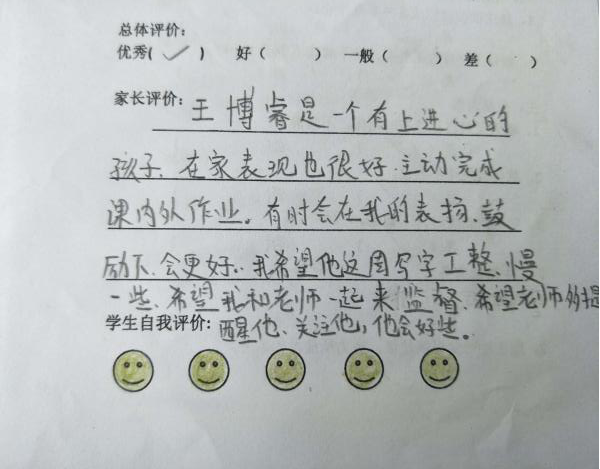 总体评价：
优秀（✓） 好（ ） 一般（ ） 差（ ）
家长评价：王博睿是一个有上进心的
孩子、在家表现也很好.主动完成
课内外作业。有时会在我的表扬、鼓
励下、会更好.我希望他这周写字工整、慢
一些、希望我和老师一起来监督、希望老师多提
学生自我评价：醒他、关注他，他会好些。